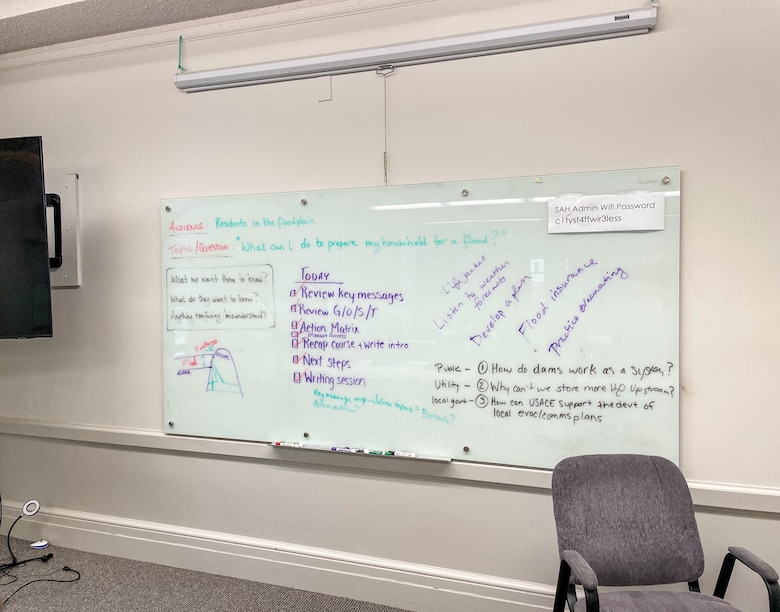 SAH Admin Wifi Password
c1fyst4ffwir3less
AUDIENCE: Residents in the floodplain
TOPIC/QUESTION: "What can I do to prepare my household for a flood?"
What we want them to know?
What do they want to know?
Anything confusing/misunderstood?
TODAY
Review key messages
Review G/O/S/T
Action Matrix
Measure Success
Recap course + write intro
Next steps
Writing session
Key message
Flood
Life jacket
Listen to weather
forecasts
Develop a plan
Flood insurance
Practice evacuating
Public - 1 How do dams work as a system?
Utility - 2 Why can't we store more H2O upstream?
local govt - 3 How can USACE support the devt of
local evac/comms plans